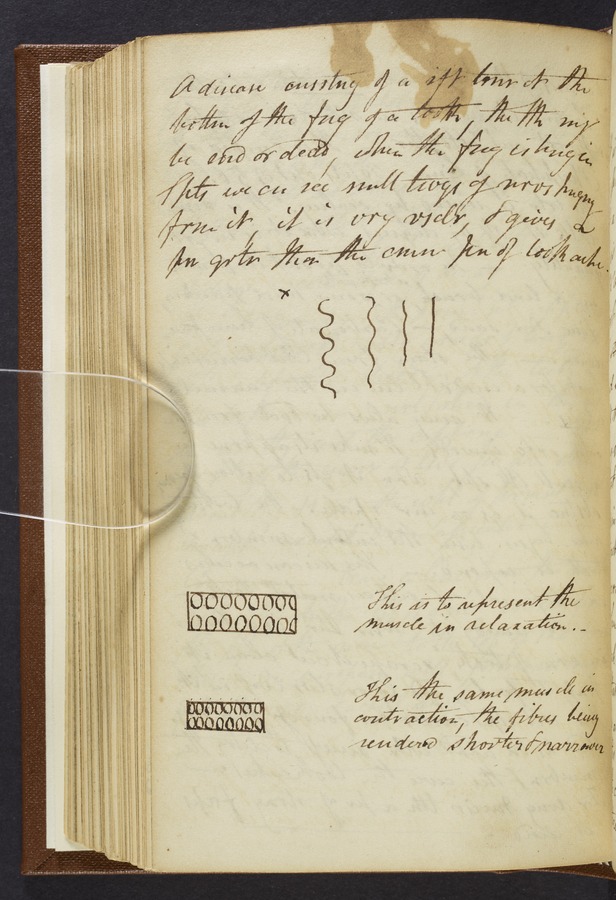 A disease consistng of a sft tumr at the
bottm of the fng of a tooth, the tth my
be snd or dead, when the fng is brogin
Spts we cn see smll twigs of nrvs hngng
from it, it is vry vsclr, & gives a
pn grtr than the cmmn pn of tooth ache.
×
This is to represent the
muscle in relaxation.-
This the same muscle in
contraction, the fibres being
rendered shorter & narrower